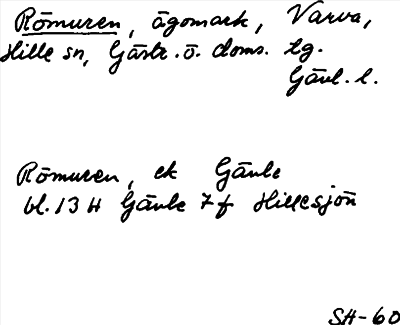 Römuren, ägomark, Varva,
Hille sn, Gästr. ö. doms. tg.
Gävl. l.
Römuren, ek Gävle
bl. 13 H Gävle 7 f Hillesjön
SH-60